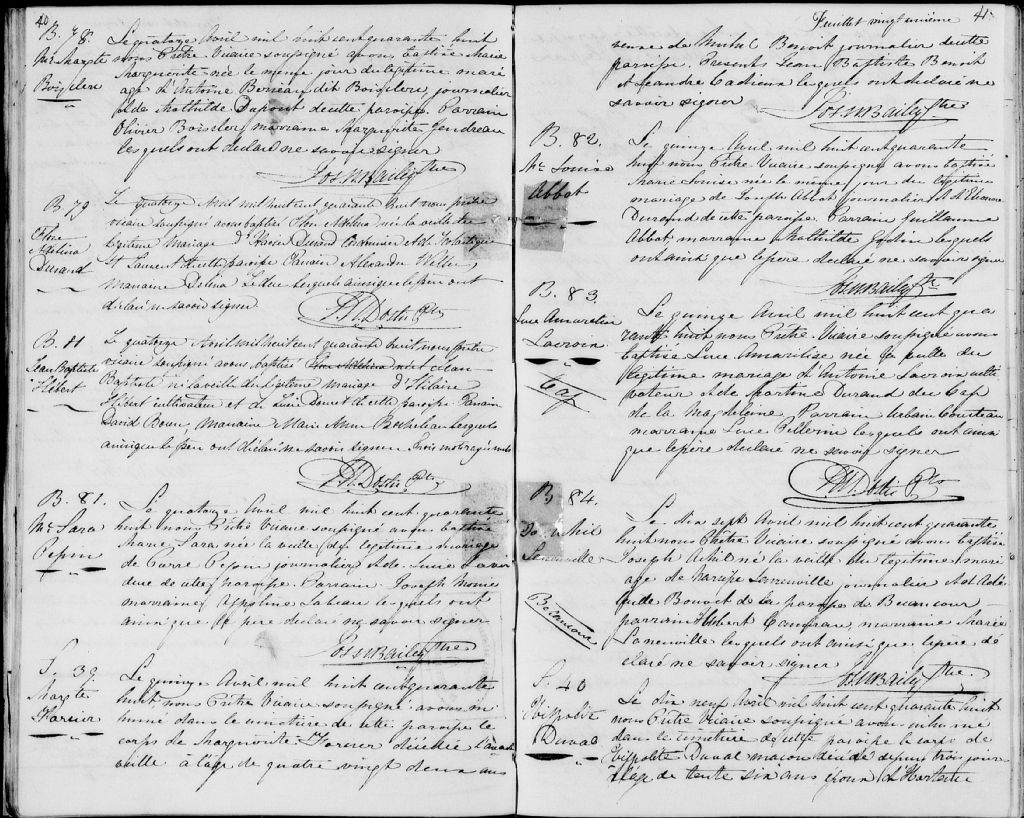 40
B. 78.
Mie Margte
Boisclere
Le quatorze Avril mil huit cent quarante huit
nous Prêtre Vicaire soussigné avons baptisé Marie
Marguerite née le même jour du légitime mari
age d'Antoine dit Boisclere, journalier
et de Mathilde Dupont de cette paroisse. Parrain
Olivier Boisclere, marraine Marguerite Gendreau
lesquels ont déclaré ne savoir signer
Jos. M Bailey Ptre
B. 79
Flon
Athlina
Durand
Le quatorze Avril mil huit cent quarante huit nous prêtre
vicaire soussigné avons baptisé Athlina née la veille du
légitime Mariage d' Durand Cordonnier et de Scholastique
St Laurent de cette paroisse Parrain Alexandre
marraine Delina Leduc lesquels ainsi que le père ont
déclaré ne savoir signer
Dostie Ptre
B. 11
Jean Baptiste
Hébert
Le quatorze Avril mil huit cent quarante huit nous prêtre
vicaire soussigné avons baptisé Jean
Baptiste né la veille du légitime mariage d'Hilaire
Hébert cultivateur et de Lucie de cette paroisse Parrain
David Marraine Marie Anne lesquels
ainsi que le père ont déclaré ne savoir signer. Trois mots rayés nuls
Dostie Ptre
B. 81.
Me Sara
Pepin
Le quatorze Avril mil huit cent quarante
huit nous Prêtre Vicaire soussigné avons baptisé
Marie Sara née la veille du légitime mariage
de Pierre Pepin journalier et de Luce
de cette paroisse. Parrain Joseph
marraine Appoline Labeau lesquels ont
ainsi que le père déclaré ne savoir signer
Jos M Bailey Ptre
S. 39.
Margte
Forcier
Le quinze Avril mil huit cent quarante
huit nous Prêtre Vicaire soussigné avons in
humé dans le cimetière de cette paroisse le
corps de Marguerite Forcier décédée l'avant
veille à l'âge de quatre vingt deux ans
Feuillet vingt unième 41.
veuve de Michel Benoit journalier de cette
paroisse. Présents Jean Baptiste Benoit
et Leandre lesquels ont déclaré ne
savoir signer
Jos M Bailey Ptre
B. 82.
Me Louise
Abbot
Le quinze Avril mil huit cent quarante
huit nous Prêtre Vicaire soussigné avons baptisé
Marie Louise née le même jour du légitime
mariage de Joseph Abbot journalier et d'Eleonore
Durand de cette paroisse. Parrain Guillaume
Abbot, marraine Mathilde lesquels
ont ainsi que le père déclaré ne savoir signer
Jos M Bailey Ptre
B. 83.
Luce Amarilise
Lacroix
Cap
Le quinze Avril mil huit cent qua
rante huit nous Prêtre Vicaire soussigné avons
baptisé Luce Amarilise née la veille du
légitime mariage d'Antoine Lacroix culti
vateur et de Martine Durand du Cap
de la Magdeleine Parrain Urbain Courteau
marraine Luce Pellerin lesquels ont ainsi
que le père déclaré ne savoir signer
Dostie Ptre
B. 84.
Jo. Achil
Laneuville
Bécancour
Le dix sept Avril mil huit cent quarante
huit nous Prêtre Vicaire soussigné avons baptisé
Joseph Achil né la veille du légitime mari
age de Narcisse Laneuville journalier et d'Adé
laïde Bouvet de la paroisse de Becancour
parrain Hubert marraine Marie
Laneuville lesquels ont ainsi que le père dé
claré ne savoir signer
Jos M Bailey Ptre
S. 40
Hippolite
Duval
Le dix neuf Avril mil huit cent quarante huit
nous Prêtre Vicaire soussigné avons inhumé
dans le cimetière de cette paroisse le corps de
Hippolite Duval maçon décédé depuis trois jours
à l'âge de trente six ans époux d'